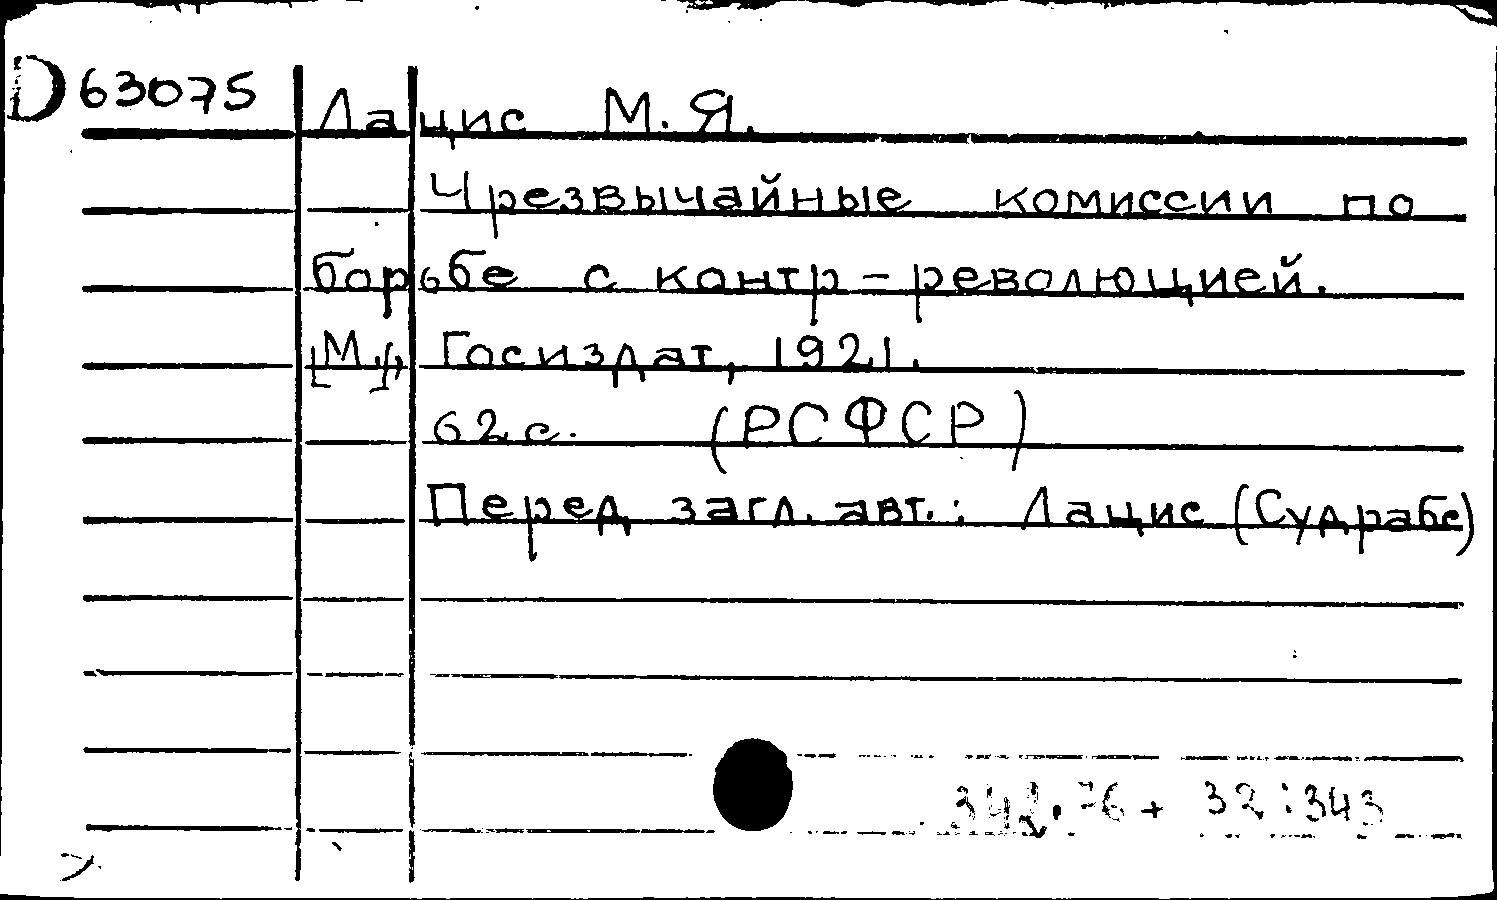 D 63075 Лацис М. Я.
Чрезвычайные комиссии по
борьбе с контр-революцией.
[М.], Госиздат, 1921.
62 с. (РСФСР)
Перед загл. авт.: Лацис (Судрабс)
342.76 + 32:343